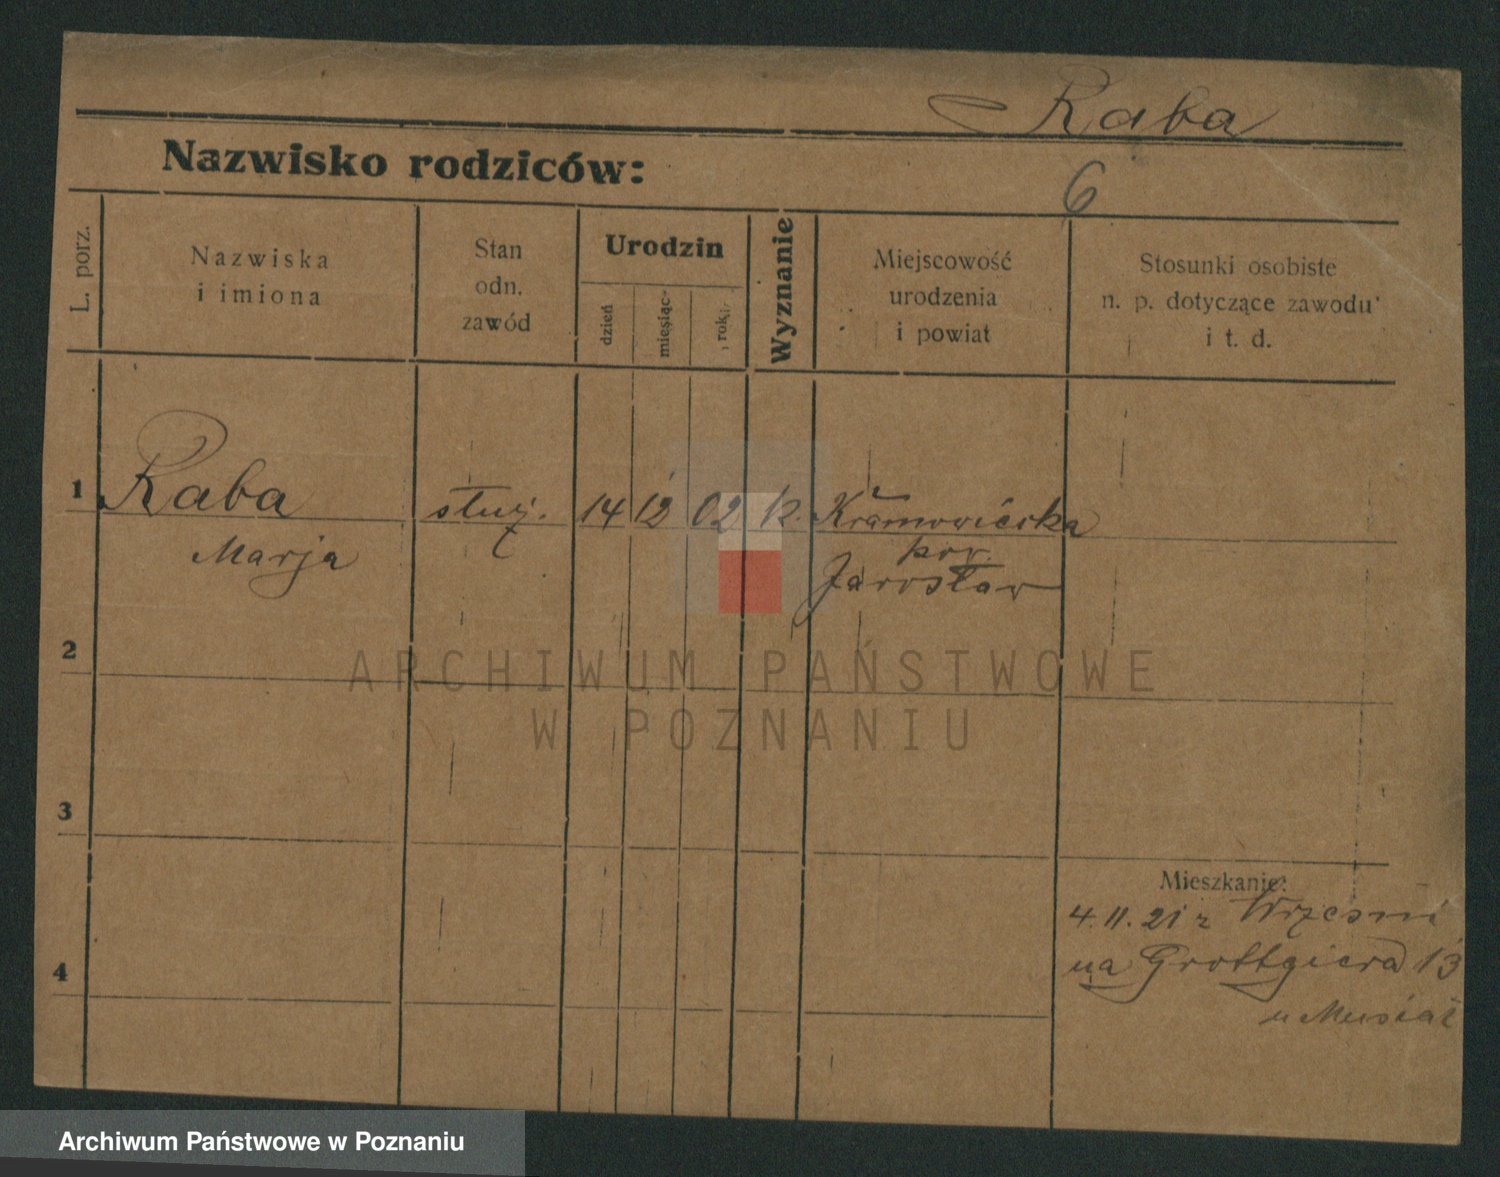 Raba
Nazwisko rodziców:
6
L. porz.
Nazwiska
i imiona
Stan
odn.
zawód
Urodzin
dzień
miesiąc
rok
Wyznanie
Miejscowość
urodzenia
i powiat
Stosunki osobiste
n. p. dotyczące zawodu
i t. d.
1 Raba służ. 14 12 02 k.
Marja
pow.
Jarosław
2
3
4
Mieszkanie:
4.11.21 z Wrześni
na Grottgiera 13
u Musiał
ARCHIWUM PAŃSTWOWE
W POZNANIU
Archiwum Państwowe w Poznaniu